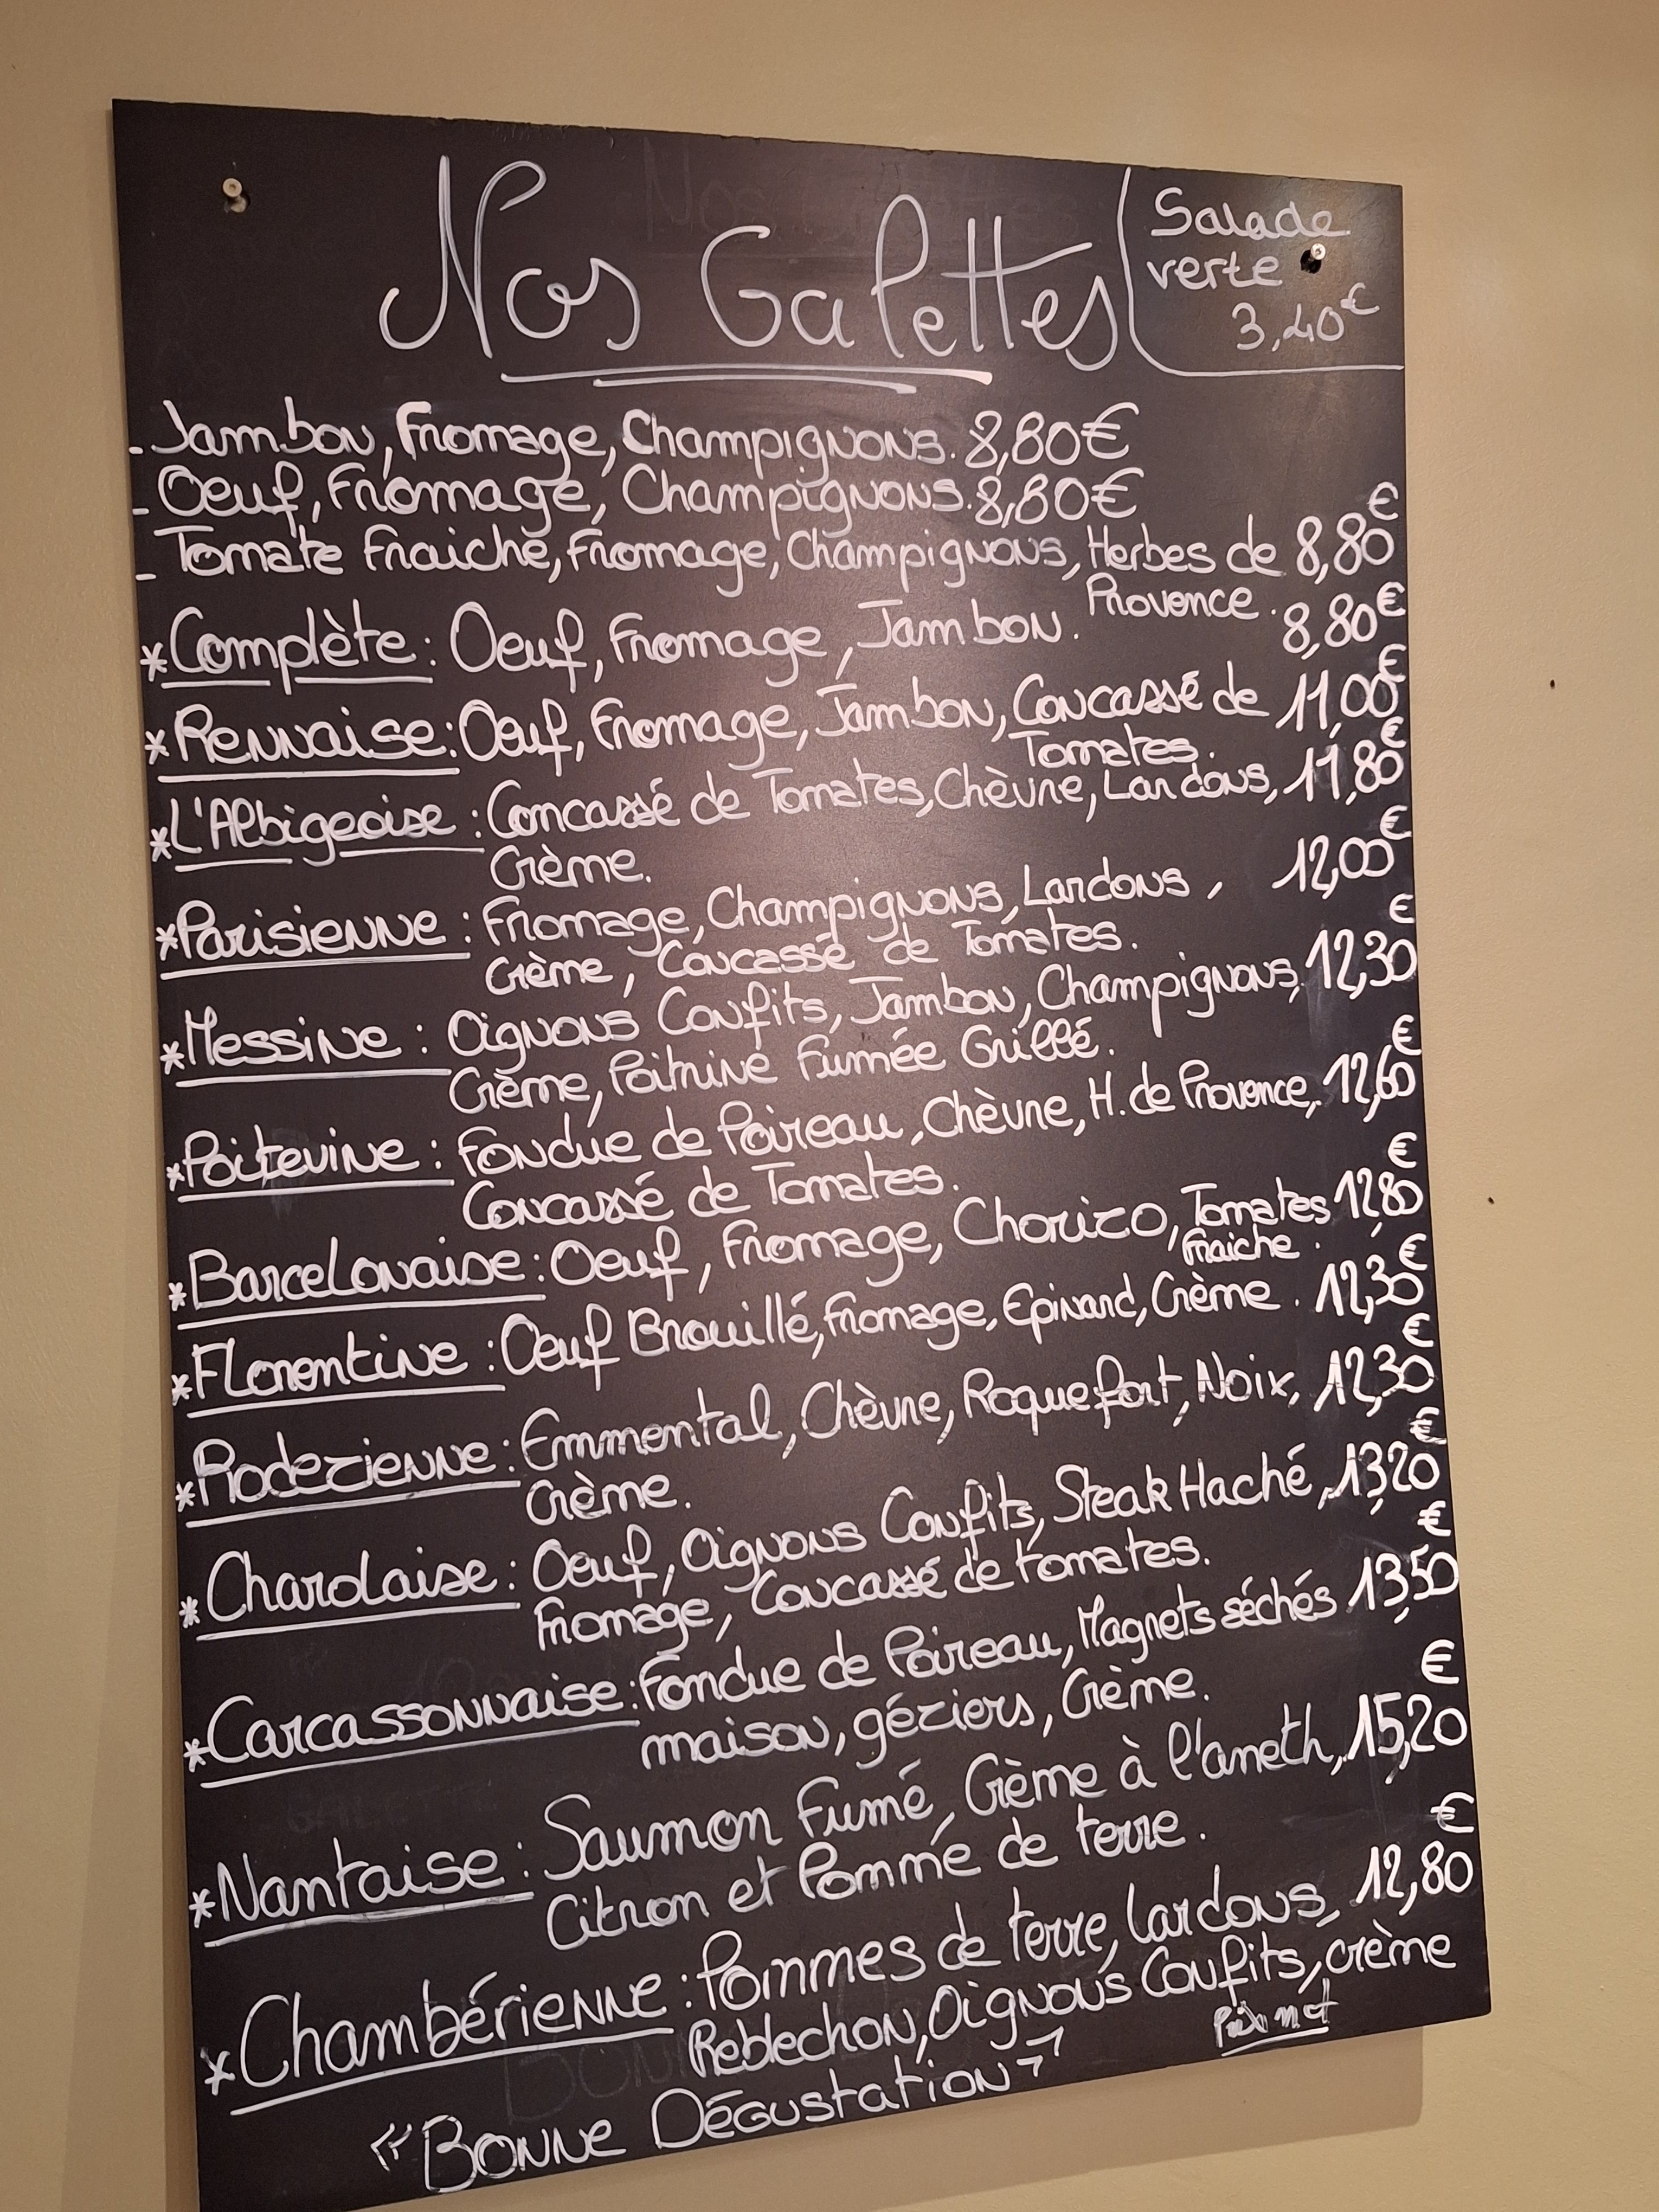 Nos Galettes
Salade
verte
3,40€
- Jambon, Fromage, Champignons. 8,80€
- Oeuf, Fromage, Champignons. 8,80€
- Tomate Fraiche, Fromage, Champignons, Herbes de 8,80€
Provence.
*Complète : Oeuf, Fromage, Jambon. 8,80€
*Rennaise : Oeuf, Fromage, Jambon, Concassé de 11,00€
Tomates.
*L'Albigeoise : Concassé de Tomates, Chèvre, Lardons, 11,80€
Crème.
*Parisienne : Fromage, Champignons, Lardons, 12,00€
Crème, Concassé de Tomates.
*Messine : Oignons Confits, Jambon, Champignons, 12,30€
Crème, Poitrine Fumée Grillé.
*Poitevine : Fondue de Poireau, Chèvre, H. de Provence, 12,60€
Concassé de Tomates.
*Barcelonaise : Oeuf, Fromage, Chorizo, Tomates 12,80€
Fraiche.
*Florentine : Oeuf Brouillé, Fromage, Epinard, Crème. 12,30€
*Rodezienne : Emmental, Chèvre, Roquefort, Noix, 12,30€
Crème.
*Charolaise : Oeuf, Oignons Confits, Steak Haché, 13,20€
Fromage, Concassé de tomates.
*Carcassonnaise : Fondue de Poireau, Magrets séchés 13,50€
maison, géziers, Crème.
*Nantaise : Saumon Fumé, Crème à l'aneth, 15,20€
Citron et Pomme de terre.
*Chambérienne : Pommes de terre, lardons, 12,80€
Reblechon, Oignons Confits, crème
Prix net
"BONNE DÉGUSTATION"